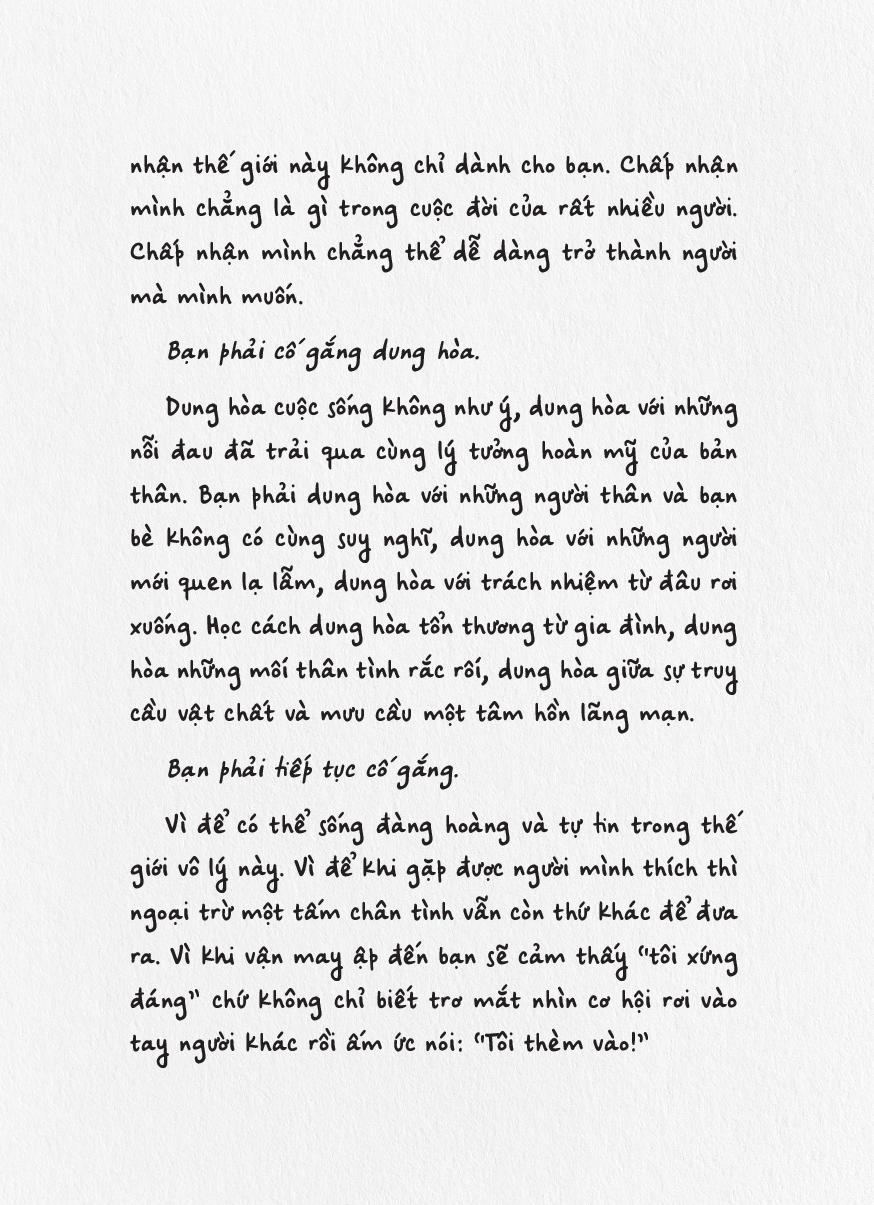 nhận thế giới này không chỉ dành cho bạn. Chấp nhận
mình chẳng là gì trong cuộc đời của rất nhiều người.
Chấp nhận mình chẳng thể dễ dàng trở thành người
mà mình muốn.
Bạn phải cố gắng dung hòa.
Dung hòa cuộc sống không như ý, dung hòa với những
nỗi đau đã trải qua cùng lý tưởng hoàn mỹ của bản
thân. Bạn phải dung hòa với những người thân và bạn
bè không có cùng suy nghĩ, dung hòa với những người
mới quen lạ lẫm, dung hòa với trách nhiệm từ đâu rơi
xuống. Học cách dung hòa tổn thương từ gia đình, dung
hòa những mối thân tình rắc rối, dung hòa giữa sự truy
cầu vật chất và mưu cầu một tâm hồn lãng mạn.
Bạn phải tiếp tục cố gắng.
Vì để có thể sống đàng hoàng và tự tin trong thế
giới vô lý này. Vì để khi gặp được người mình thích thì
ngoại trừ một tấm chân tình vẫn còn thứ khác để đưa
ra. Vì khi vận may ập đến bạn sẽ cảm thấy “tôi xứng
đáng” chứ không chỉ biết trơ mắt nhìn cơ hội rơi vào
tay người khác rồi ấm ức nói: “Tôi thèm vào!”